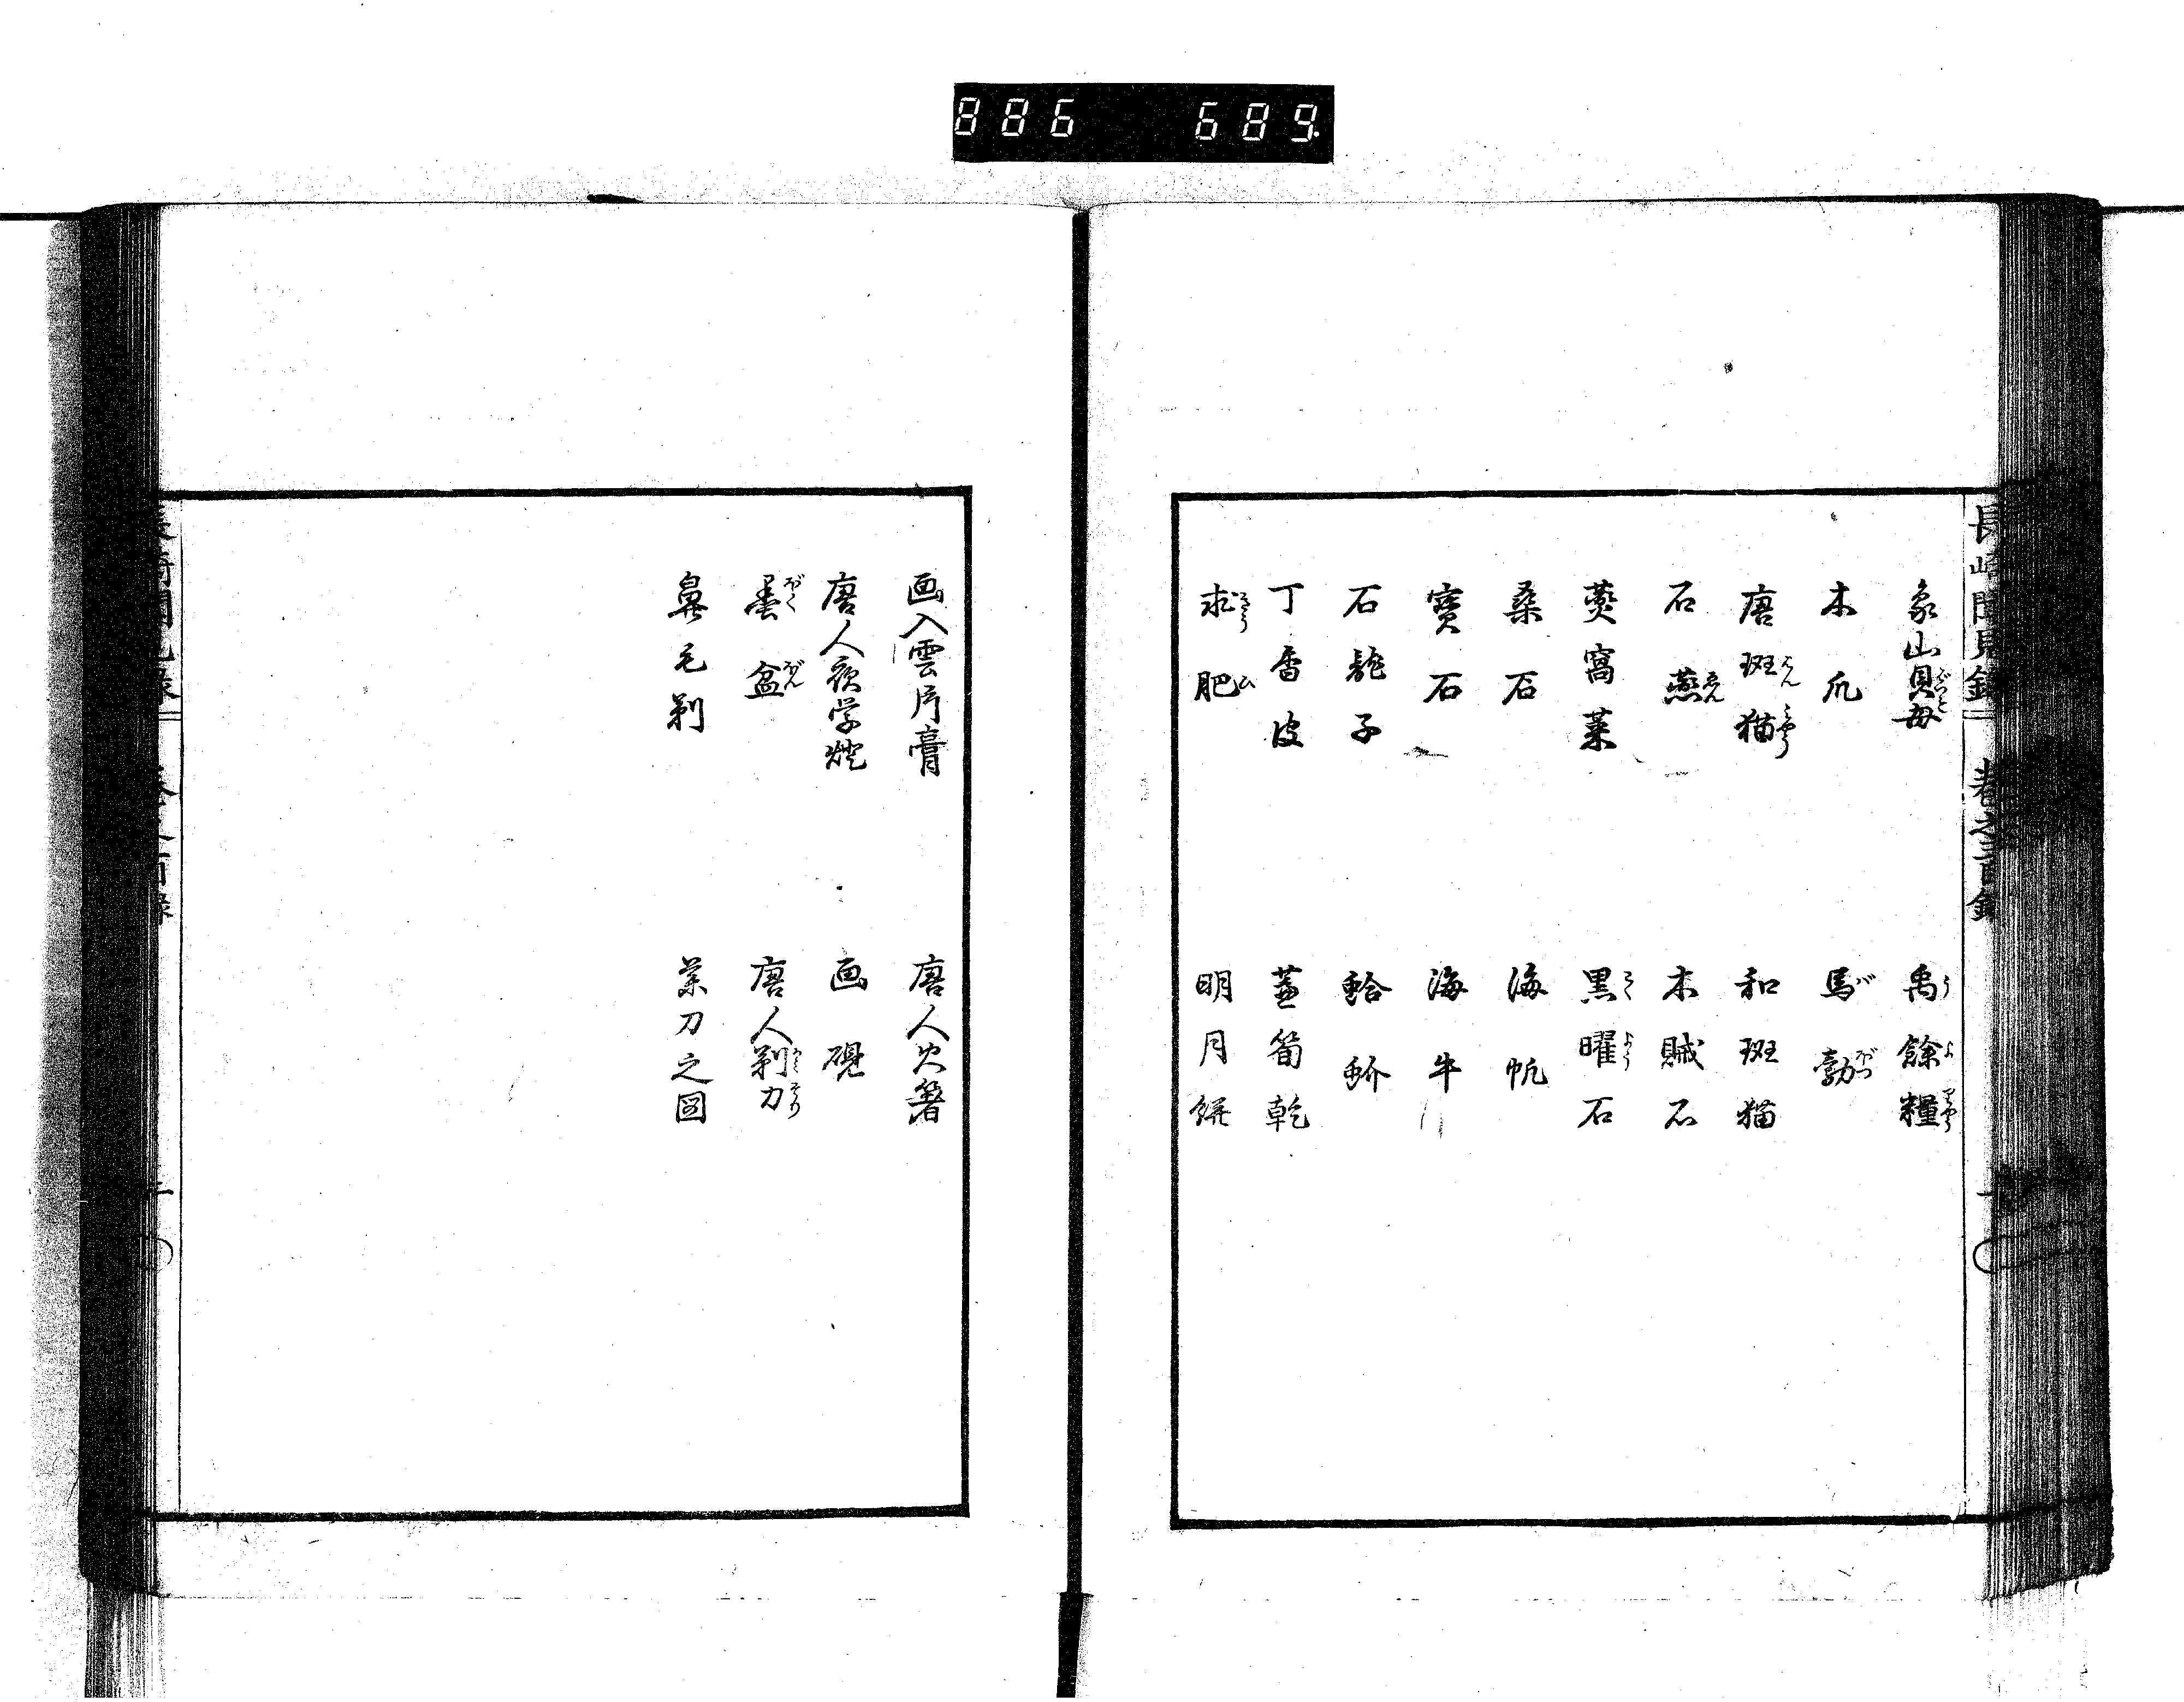 886 689.
長崎聞見録 巻之 目録
象山貝母
禹餘糧
木瓜
馬勃
唐斑猫
和斑猫
石燕
木賊石
燕窩菜
黒曜石
桑石
海帆
寳石
海牛
石龍子
蛤蚧
丁香皮
蓋筍乾
求肥
明月餅
画入雲片膏
唐人火箸
唐人
画硯
墨盆
唐人剃刀
鼻毛剃
菜刀之図